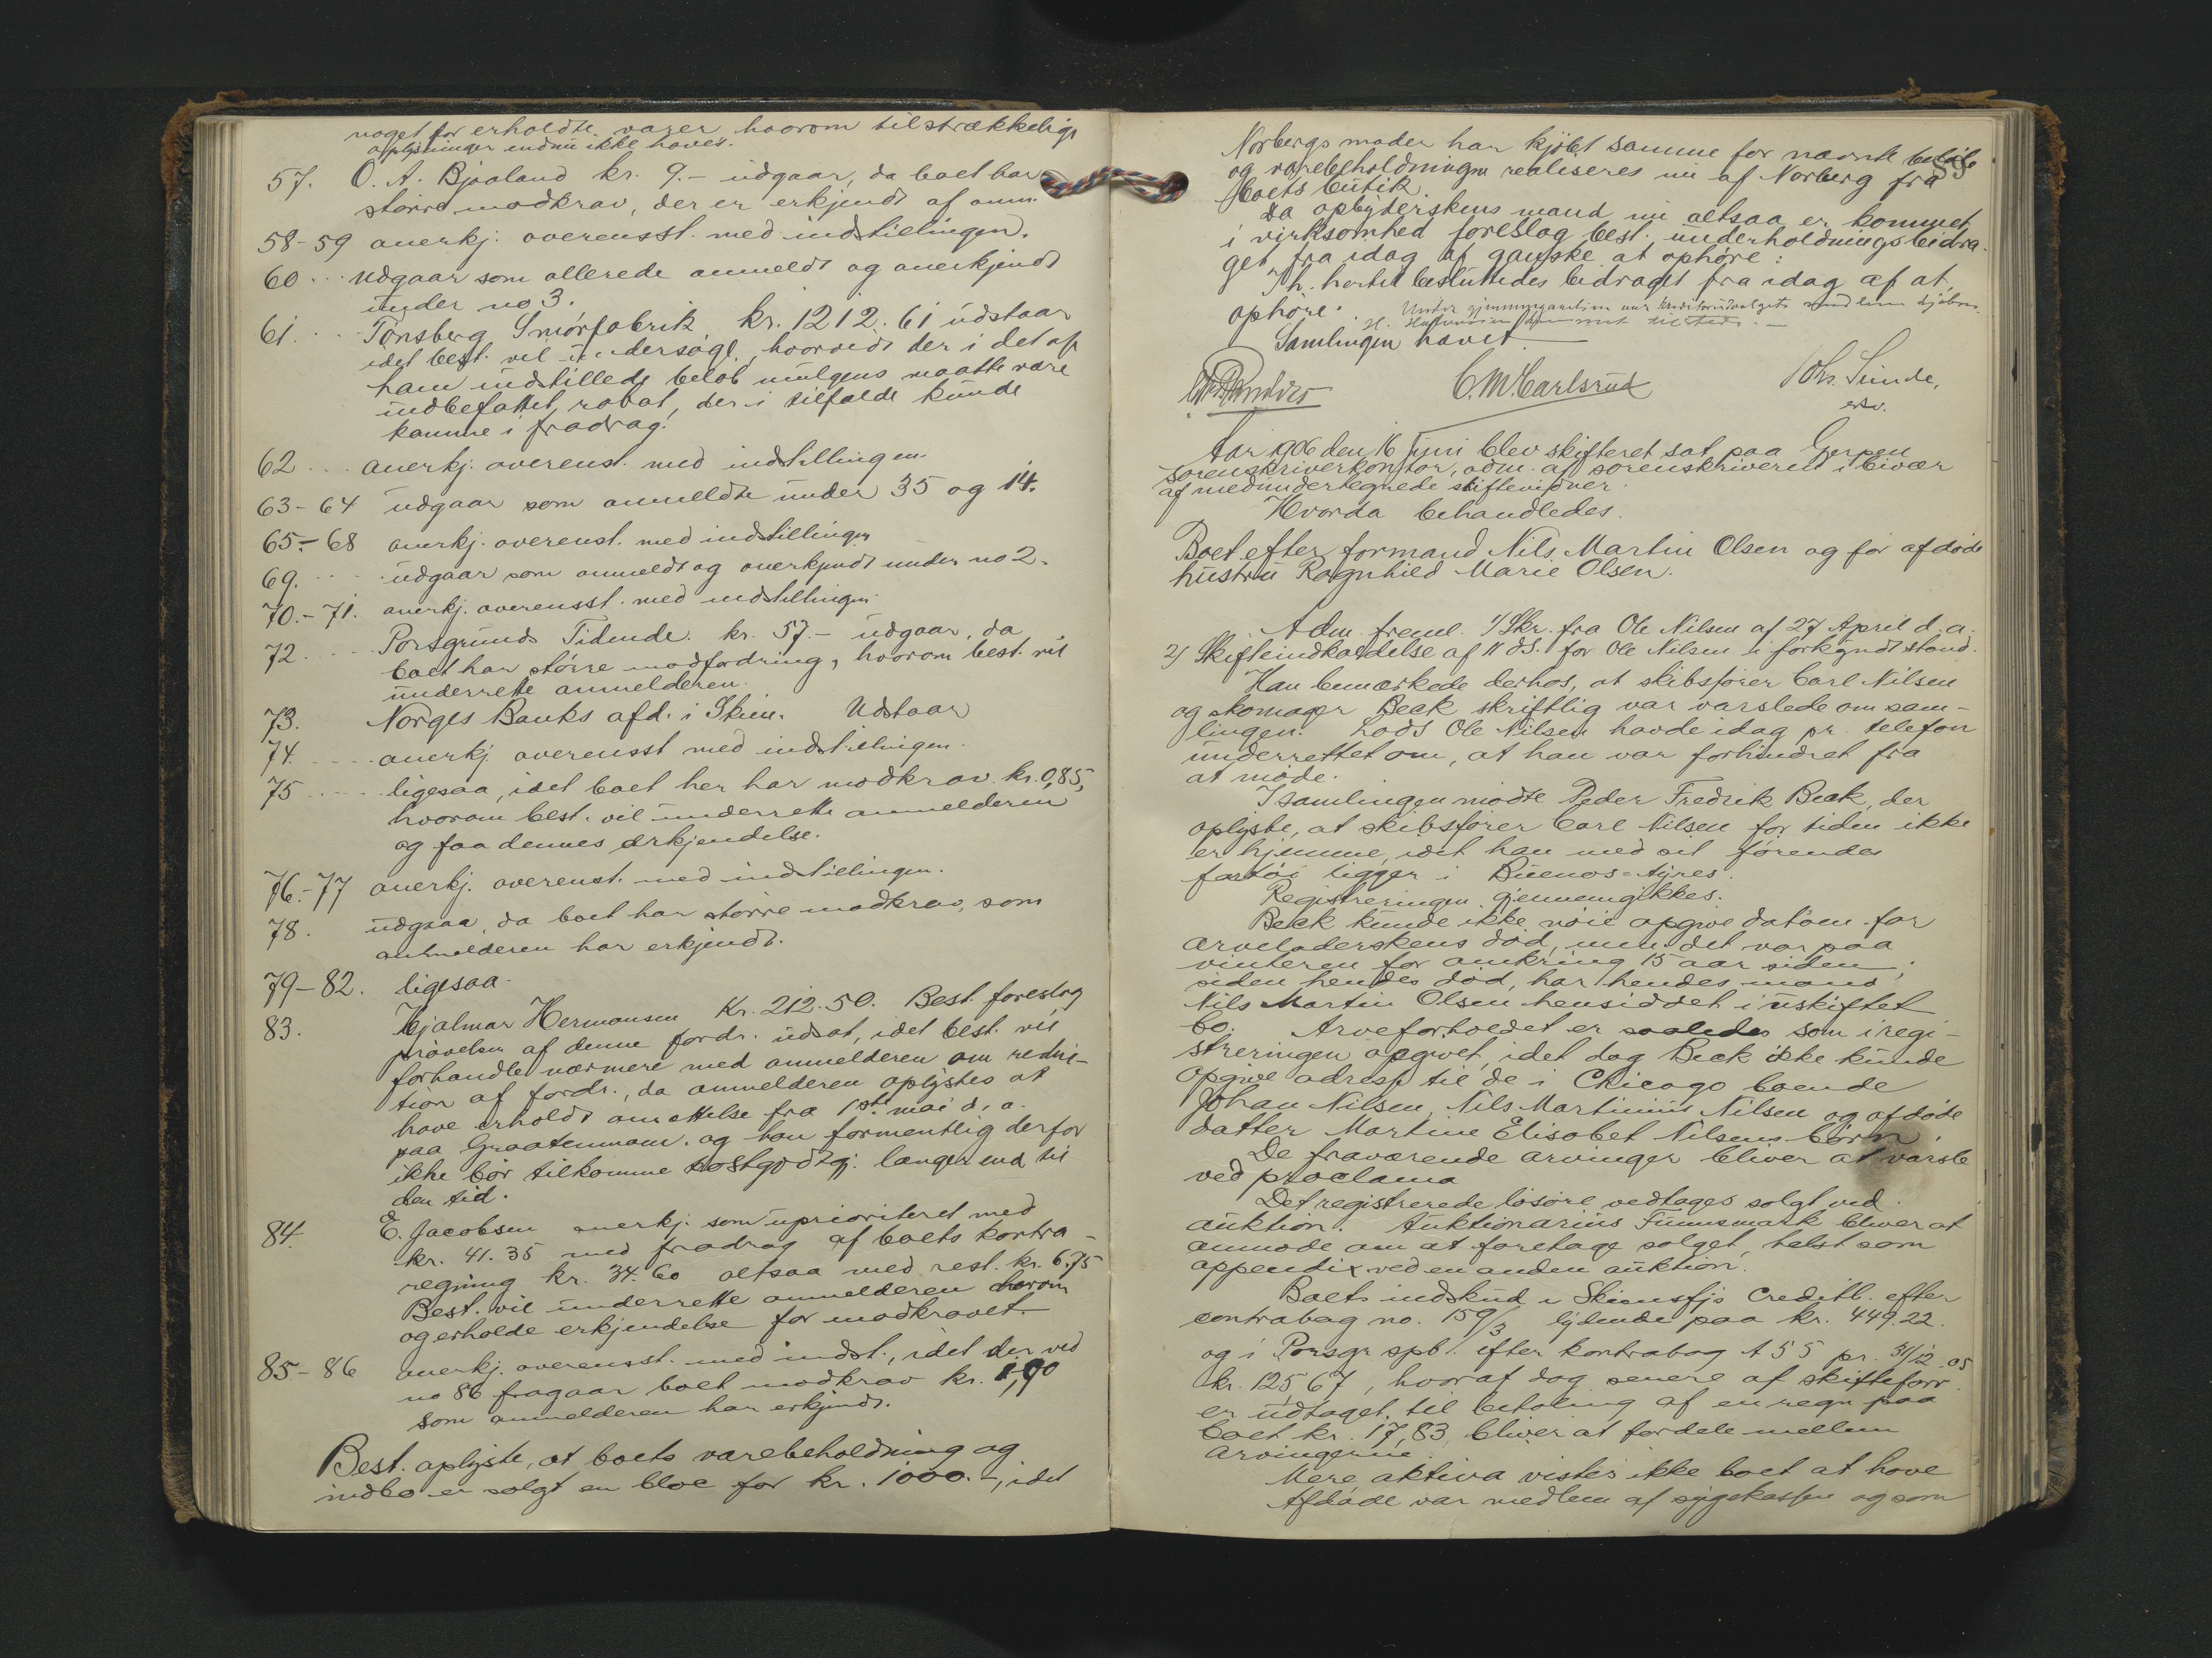 noget for erholdte varer hvorom tilstrækkelige
oplysninger endnu ikke haves.
57. O. A. Bjaaland kr. 9.- udgaar, da boet har
større modkrav, der er erkjendt af anm.
58-59 anerkj. overensst. med indstillingen.
60 ... udgaar som allerede anmeldt og anerkjendt
under no 3.
61. ... Tønsberg Smørfabrik kr. 1212.61 udstaar
idet best. vil undersøge, hvorvidt der i det af
ham indstillede beløb muligens maatte være
indbefattet rabat, der i tilfælde kunde
komme i fradrag.
62 ... anerkj. overenst. med indstillingen
63-64 udgaar som anmeldte under 35 og 14.
65-68 anerkj. overenst. med indstillingen
69. ... udgaar som anmeldt og anerkjendt under no 2.
70.-71. anerkj. overensst. med indstillingen
72 ... Porsgrunds Tidende. kr. 57.- udgaar, da
boet har større modfordring, hvorom best. vil
underrette anmelderen.
73. Norges Banks afd. i Skien. Udstaar
74. ... anerkj. overensst med indstillingen.
75 ... ligesaa, idet boet her har modkrav kr. 0,85,
hvorom best. vil underrette anmelderen
og faa dennes erkjendelse.
76.-77 anerkj. overenst. med indstillingen.
78. udgaa, da boet har større modkrav, som
anmelderen har erkjendt.
79-82. ligesaa.
83. Hjalmar Hermansen Kr. 212.50. Best. foreslog
prøvelsen af denne fordr. udsat, idet best. vil
forhandle nærmere med anmelderen om reduk-
tion af fordr., da anmelderen oplystes at
have erholdt ansættelse fra 1ste mai d. a.
paa Graatenmoen. og han formentlig derfor
ikke bør tilkomme kostgodtgj. længer end til
den tid.
84. E. Jacobsen anerkj. som uprioriteret med
kr. 41.35 med fradrag af boets kontra-
regning kr. 34.60 altsaa med rest. kr. 6.75
Best. vil underrette anmelderen herom
og erholde erkjendelse for modkravet.
85-86 anerkj. overensst. med indst., idet der ved
no 86 fragaar boet modkrav kr. 1,90
som anmelderen har erkjendt.
Best. oplyste, at boets varebeholdning og
indbo er solgt en bloc for kr. 1000.-, idet
Norbergs moder har kjøbt samme for nævnte beløb
og varebeholdningen realiseres nu af Norberg fra
boets butik.
Da opbyderskens mand nu altsaa er kommet
i virksomhed foreslog best. underholdningsbidra-
get fra idag af ganske at ophøre:
I h. hertil besluttedes bidraget fra idag af at
ophøre.
Under gjennemgaaelsen var kreditorudvalgets medlem kjøbm.
Samlingen hævet
C. M. Carlsrud
Johs. Sunde,
Aar 1906 den 16 juni blev skifteret sat paa Gjerpen
sorenskriverkontor, adm. af sorenskriveren i bivær
af medundertegnede skiftevidner.
Hvorda behandledes.
Boet efter formand Nils Martin Olsen og før afdøde
hustru Ragnhild Marie Olsen.
Adm. freml. 1/ Skr. fra Ole Nilsen af 27 April d. a.
2/ Skifteindkaldelse af 11 ds. for Ole Nilsen i forkyndt stand.
Han bemærkede derhos, at skibsfører Carl Nilsen
og skomager Beck skriftlig var varslede om sam-
lingen. Lods Ole Nilsen havde idag pr. telefon
underrettet om, at han var forhindret fra
at møde.
I samlingen mødte Peder Fredrik Beck, der
oplyste, at skibsfører Carl Nilsen for tiden ikke
er hjemme, idet han med sit førendes
fartøi ligger i Buenos-Ayres.
Registreringen gjennemgikkes.
Beck kunde ikke nøie opgive datoen for
arveladerskens død, men det var paa
vinteren for omkring 15 aar siden;
siden hendes død, har hendes mand
Nils Martin Olsen hensiddet i uskiftet
bo. Arveforholdet er saaledes som i regi-
streringen opgivet, idet dog Beck ikke kunde
opgive adresse til de i Chicago boende
Johan Nilsen, Nils Martinius Nilsen og afdøde
datter Martine Elisabet Nilsens børn.
De fraværende arvinger bliver at varsle
ved proclama
Det registrerede løsøre vedtages solgt ved
auktion. Auktionarius Funnemark bliver at
anmode om at foretage salget, helst som
appendix ved en anden auktion.
Boets indskud i Skiensfjs Creditb. efter
contrabog no. 159/3 lydende paa kr. 449.22.
og i Porsgr. spb. efter kontrabog A 55 pr. 31/12 05
kr. 125,67, hvoraf dog senere af skifteforv.
er udtaget til betaling af en regn. paa
boet kr. 17,83, bliver at fordele mellem
arvingerne.
Mere aktiva vistes ikke boet at have
Afdøde var medlem af sygekassen og som